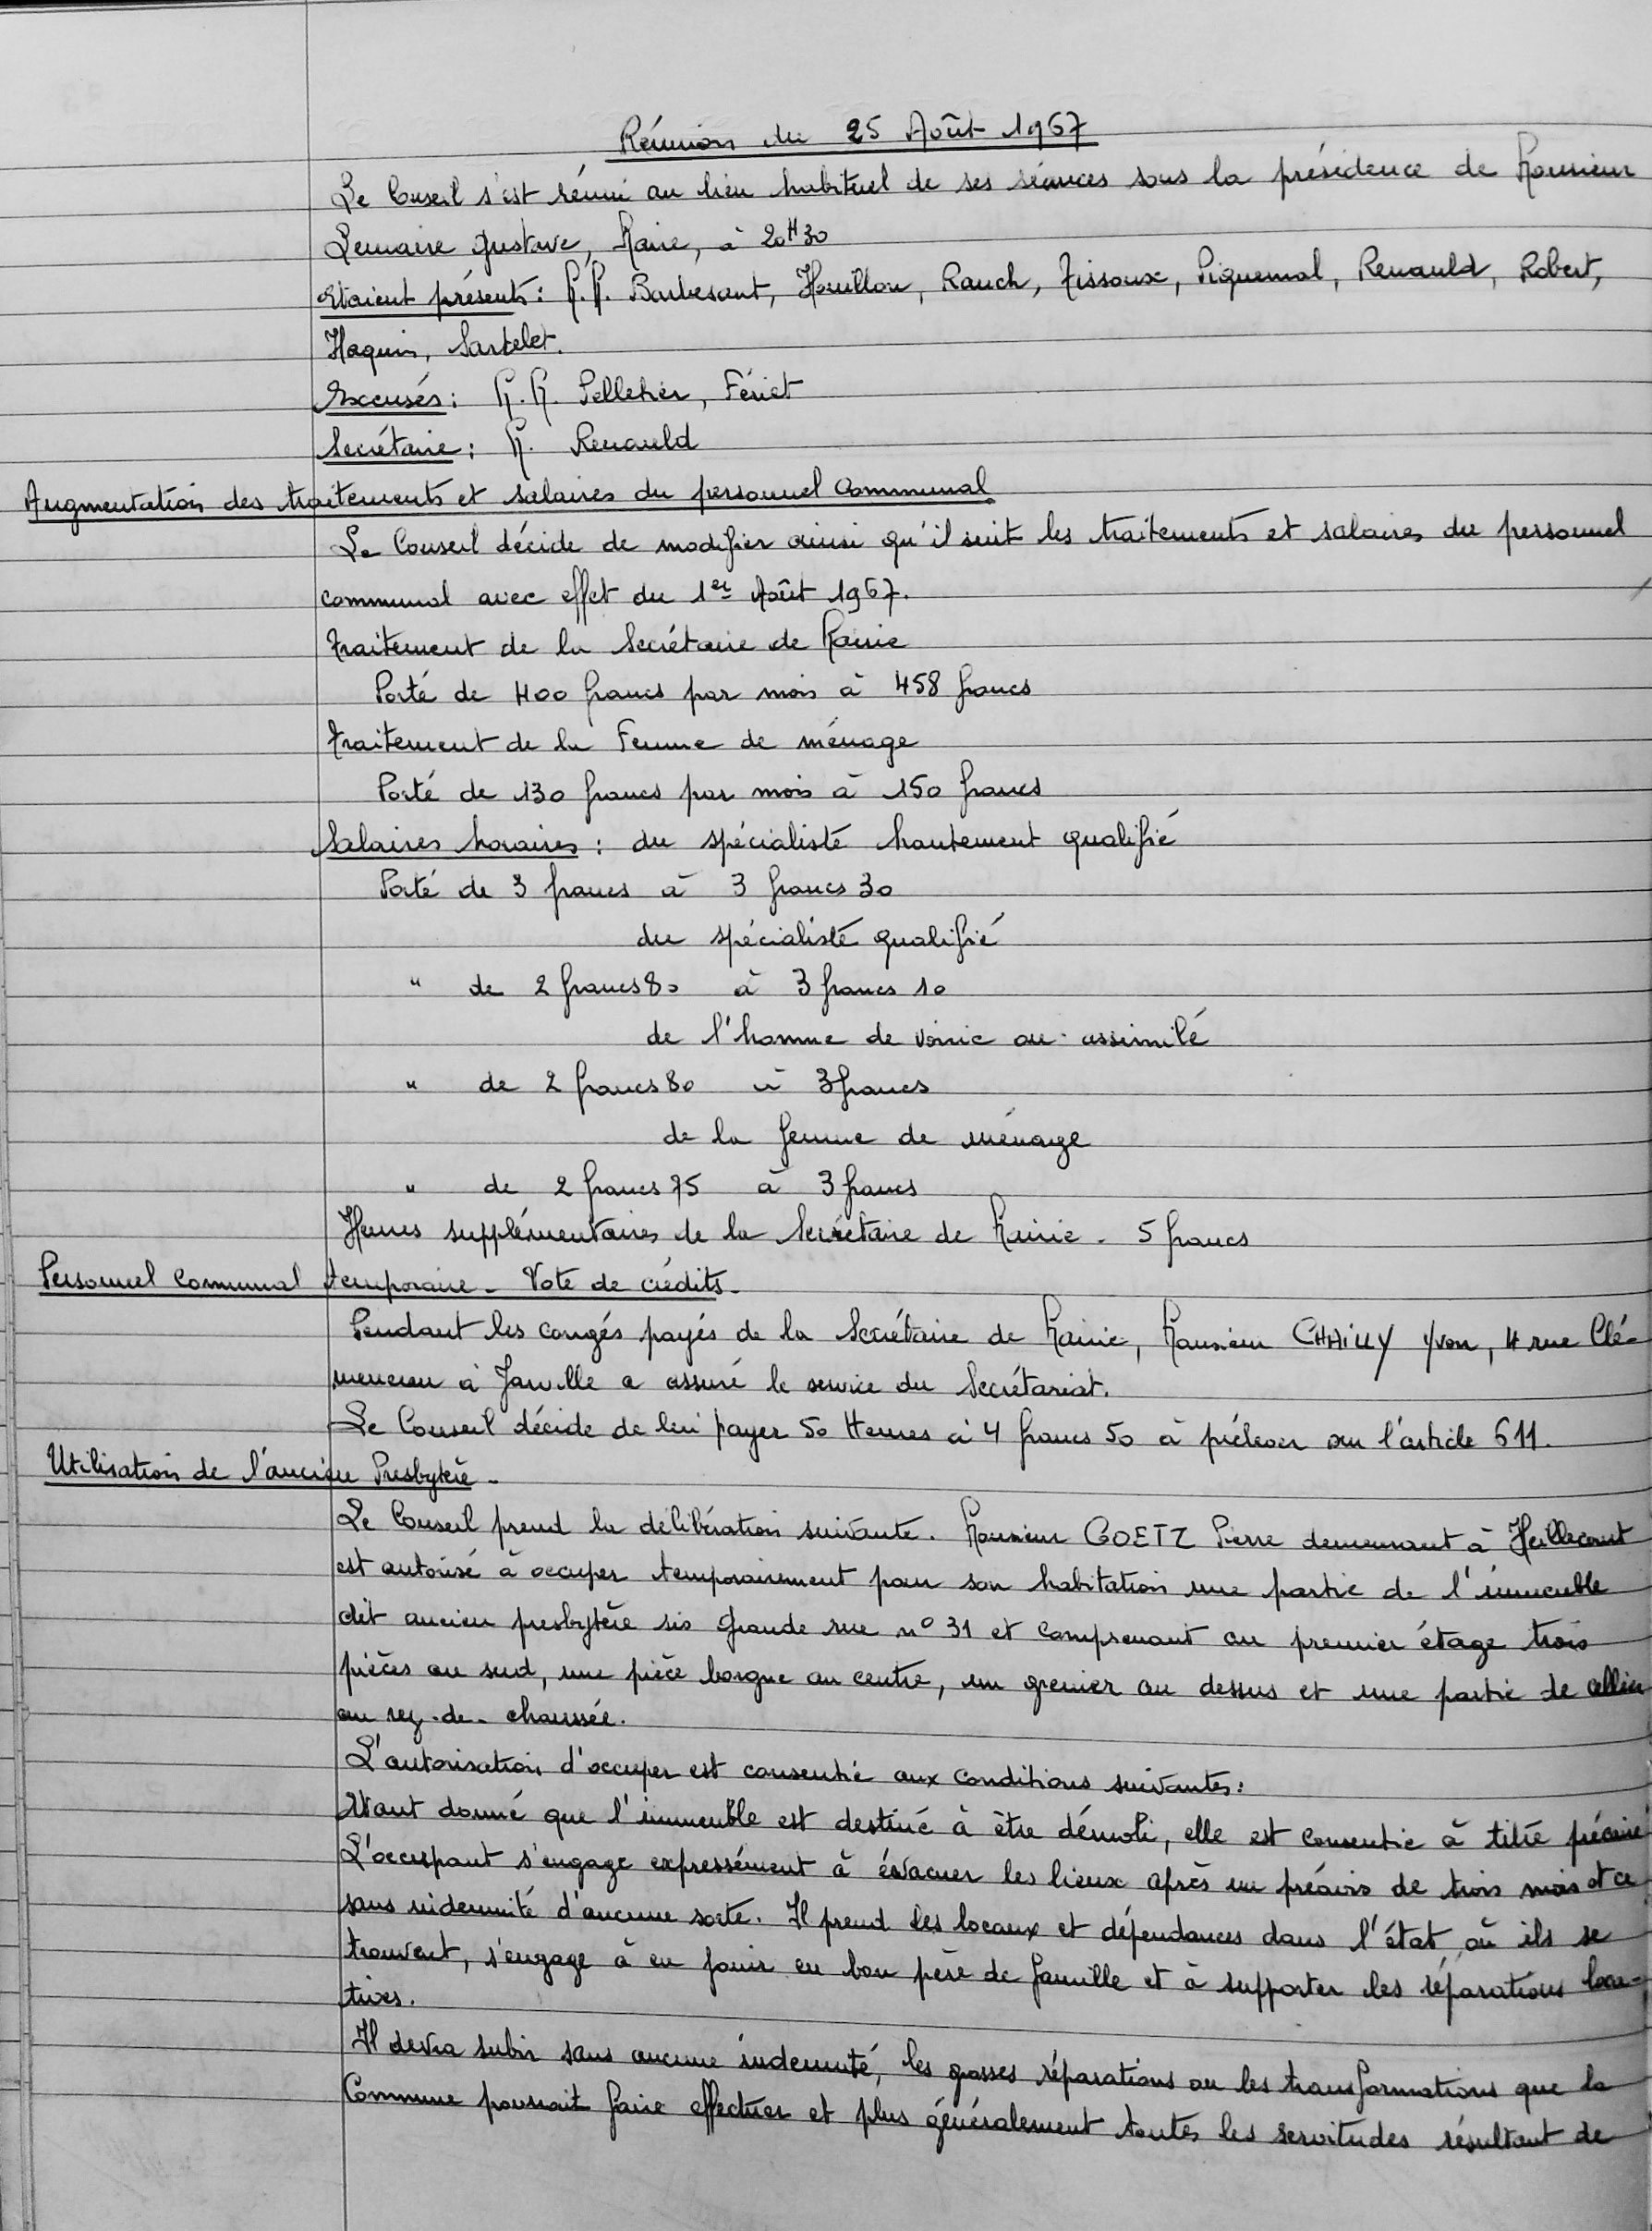 Réunion du 25 Août 1967
Le Conseil s'est réuni au lieu habituel de ses séances sous la présidence de Monsieur
Lemaire Gustave, Maire, à 20H30
Etaient présents: M.M. Barbesant, Houillon, Rauch, Tissoux, Piquemal, Renauld, Robert,
Haquin, Sartelet.
Excusés: M.M. Pelletier, Fériet
Secrétaire: M. Renauld
Augmentation des traitements et salaires du personnel Communal
Le Conseil décide de modifier ainsi qu'il suit les traitements et salaires du personnel
communal avec effet du 1er Août 1967.
Traitement de la Secrétaire de Mairie
Porté de 400 francs par mois à 458 francs
Traitement de la Femme de ménage
Porté de 130 francs par mois à 150 francs
Salaires horaires: du spécialiste hautement qualifié
Porté de 3 francs à 3 francs 30
du spécialiste qualifié
" de 2 francs 80 à 3 francs 10
de l'homme de voirie ou assimilé
" de 2 francs 80 à 3 francs
de la femme de ménage
" de 2 francs 75 à 3 francs
Heures supplémentaires de la Secrétaire de Mairie - 5 francs
Personnel Communal temporaire - Vote de crédits.
Pendant les congés payés de la Secrétaire de Mairie, Monsieur CHAILLY Yvon, 4 rue Clé-
menceau à Jarville a assuré le service du Secrétariat.
Le Conseil décide de lui payer 50 Heures à 4 francs 50 à prélever sur l'article 611.
Utilisation de l'ancien Presbytère -
Le Conseil prend la délibération suivante. Monsieur GOETZ Pierre demeurant à Heillecourt
est autorisé à occuper temporairement pour son habitation une partie de l'immeuble
dit ancien presbytère sis Grande rue n° 31 et comprenant au premier étage trois
pièces au sud, une pièce borgne au centre, un grenier au dessus et une partie de cellier
au rez-de-chaussée.
L'autorisation d'occuper est consentie aux conditions suivantes:
Etant donné que l'immeuble est destiné à être démoli, elle est consentie à titre précaire
L'occupant s'engage expressément à évacuer les lieux après un préavis de trois mois et ce
sans indemnité d'aucune sorte. Il prend les locaux et dépendances dans l'état où ils se
trouvent, s'engage à en jouir en bon père de famille et à supporter les réparations loca-
tives.
Il devra subir sans aucune indemnité, les grosses réparations ou les transformations que la
Commune pourrait faire effectuer et plus généralement toutes les servitudes résultant de